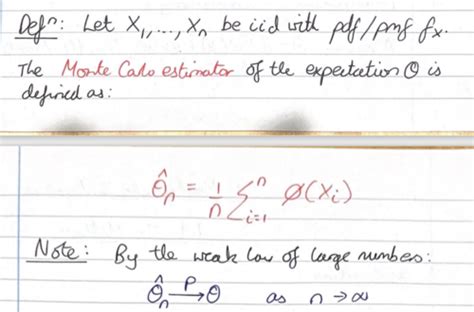 Defⁿ: Let X₁,..., Xₙ be iid with pdf/pmf fₓ.
The Monte Carlo estimator of the expectation Θ is
defined as:
Θ̂ₙ = 1/n ∑ⁿᵢ₌₁ ø(Xᵢ)
Note: By the weak law of large numbers:
Θ̂ₙ →ᴾ Θ as n → ∞